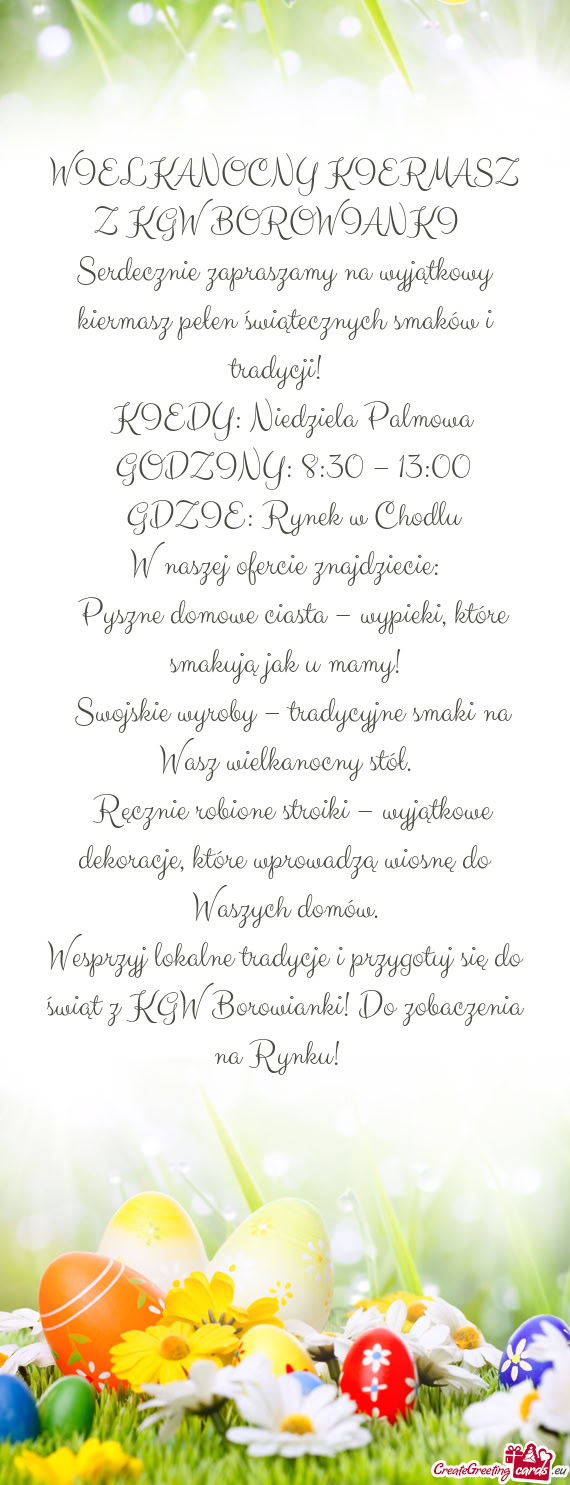 WIELKANOCNY KIERMASZ
Z KGW BOROWIANKI
Serdecznie zapraszamy na wyjątkowy
kiermasz pełen świątecznych smaków i
tradycji!
KIEDY: Niedziela Palmowa
GODZINY: 8:30 – 13:00
GDZIE: Rynek w Chodlu
W naszej ofercie znajdziecie:
Pyszne domowe ciasta – wypieki, które
smakują jak u mamy!
Swojskie wyroby – tradycyjne smaki na
Wasz wielkanocny stół.
Ręcznie robione stroiki – wyjątkowe
dekoracje, które wprowadzą wiosnę do
Waszych domów.
Wesprzyj lokalne tradycje i przygotuj się do
świąt z KGW Borowianki! Do zobaczenia
na Rynku!
CreateGreetingcards.eu